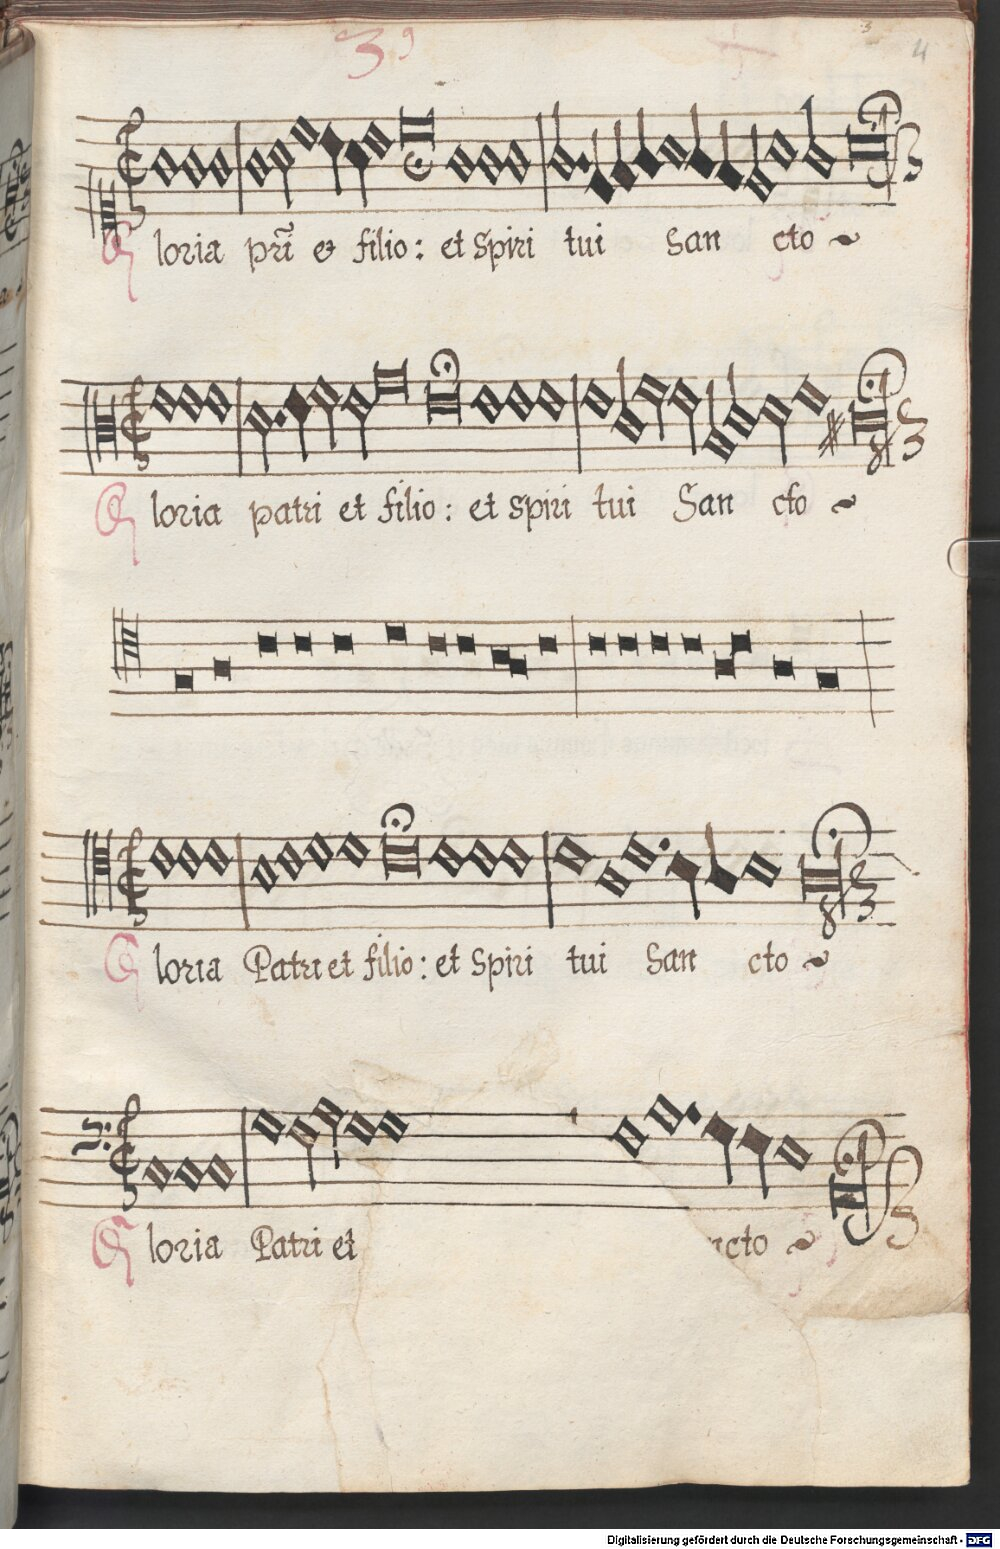 39
3
4
Gloria pri̅ et filio: et Spiri tui San cto
Gloria patri et filio: et Spiri tui San cto
Gloria Patri et filio: et Spiri tui San cto
Gloria Patri et cto
Digitalisierung gefördert durch die Deutsche Forschungsgemeinschaft - DFG